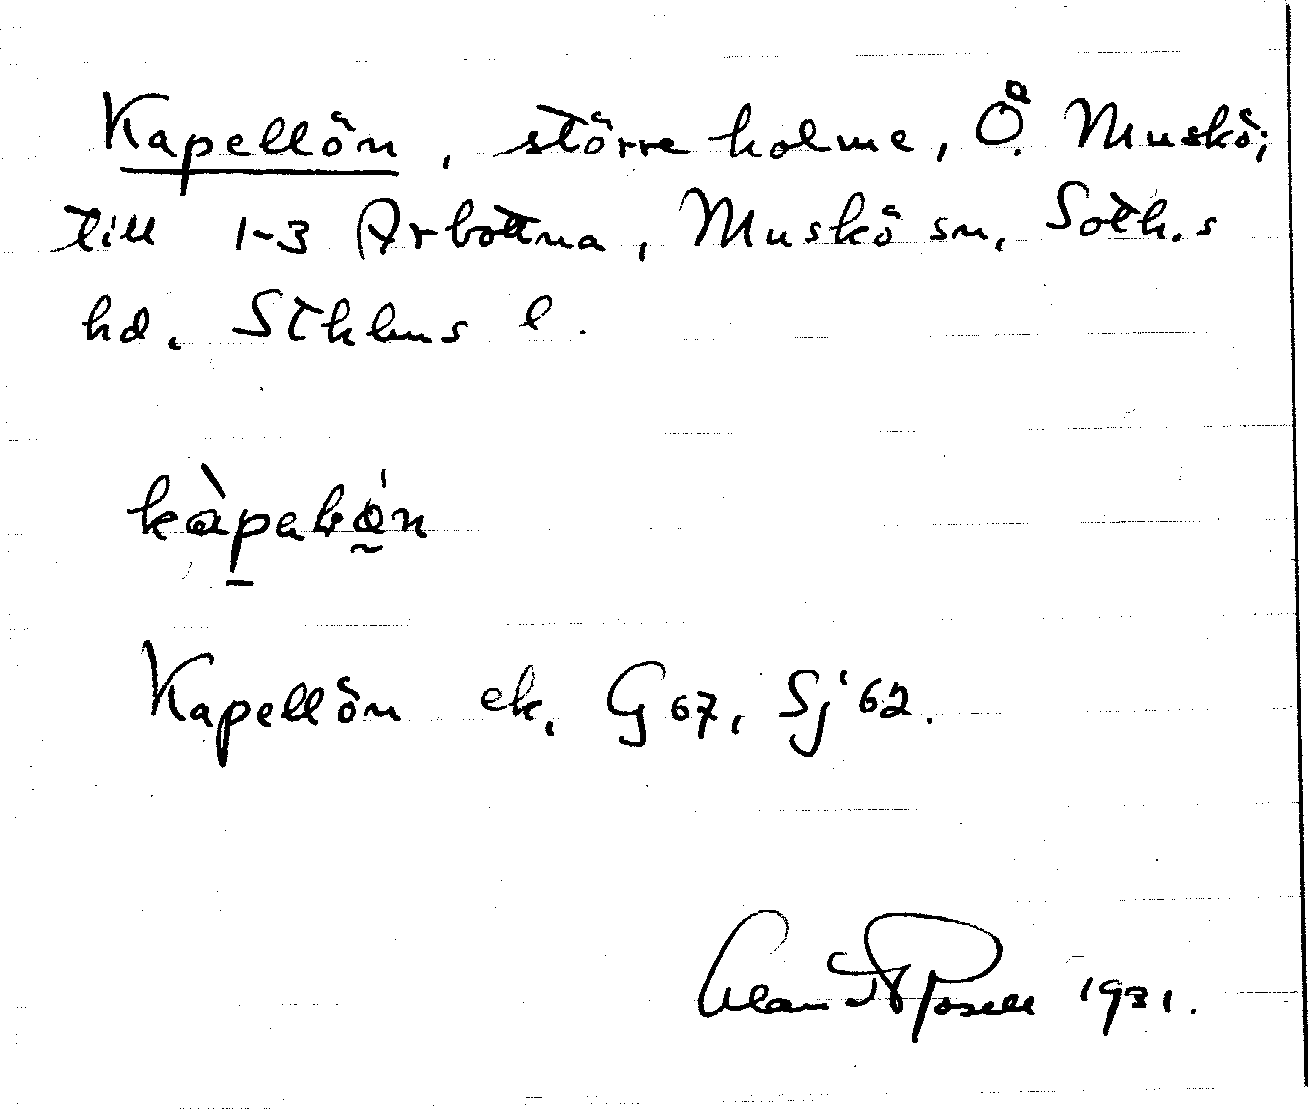 Kapellön, större holme, Ö. Muskö;
till 1-3 Arbottna, Muskö sn, Soth.s
hd, Sthlms l.
Kapellön ek, G 67, Sj '62.
1931.